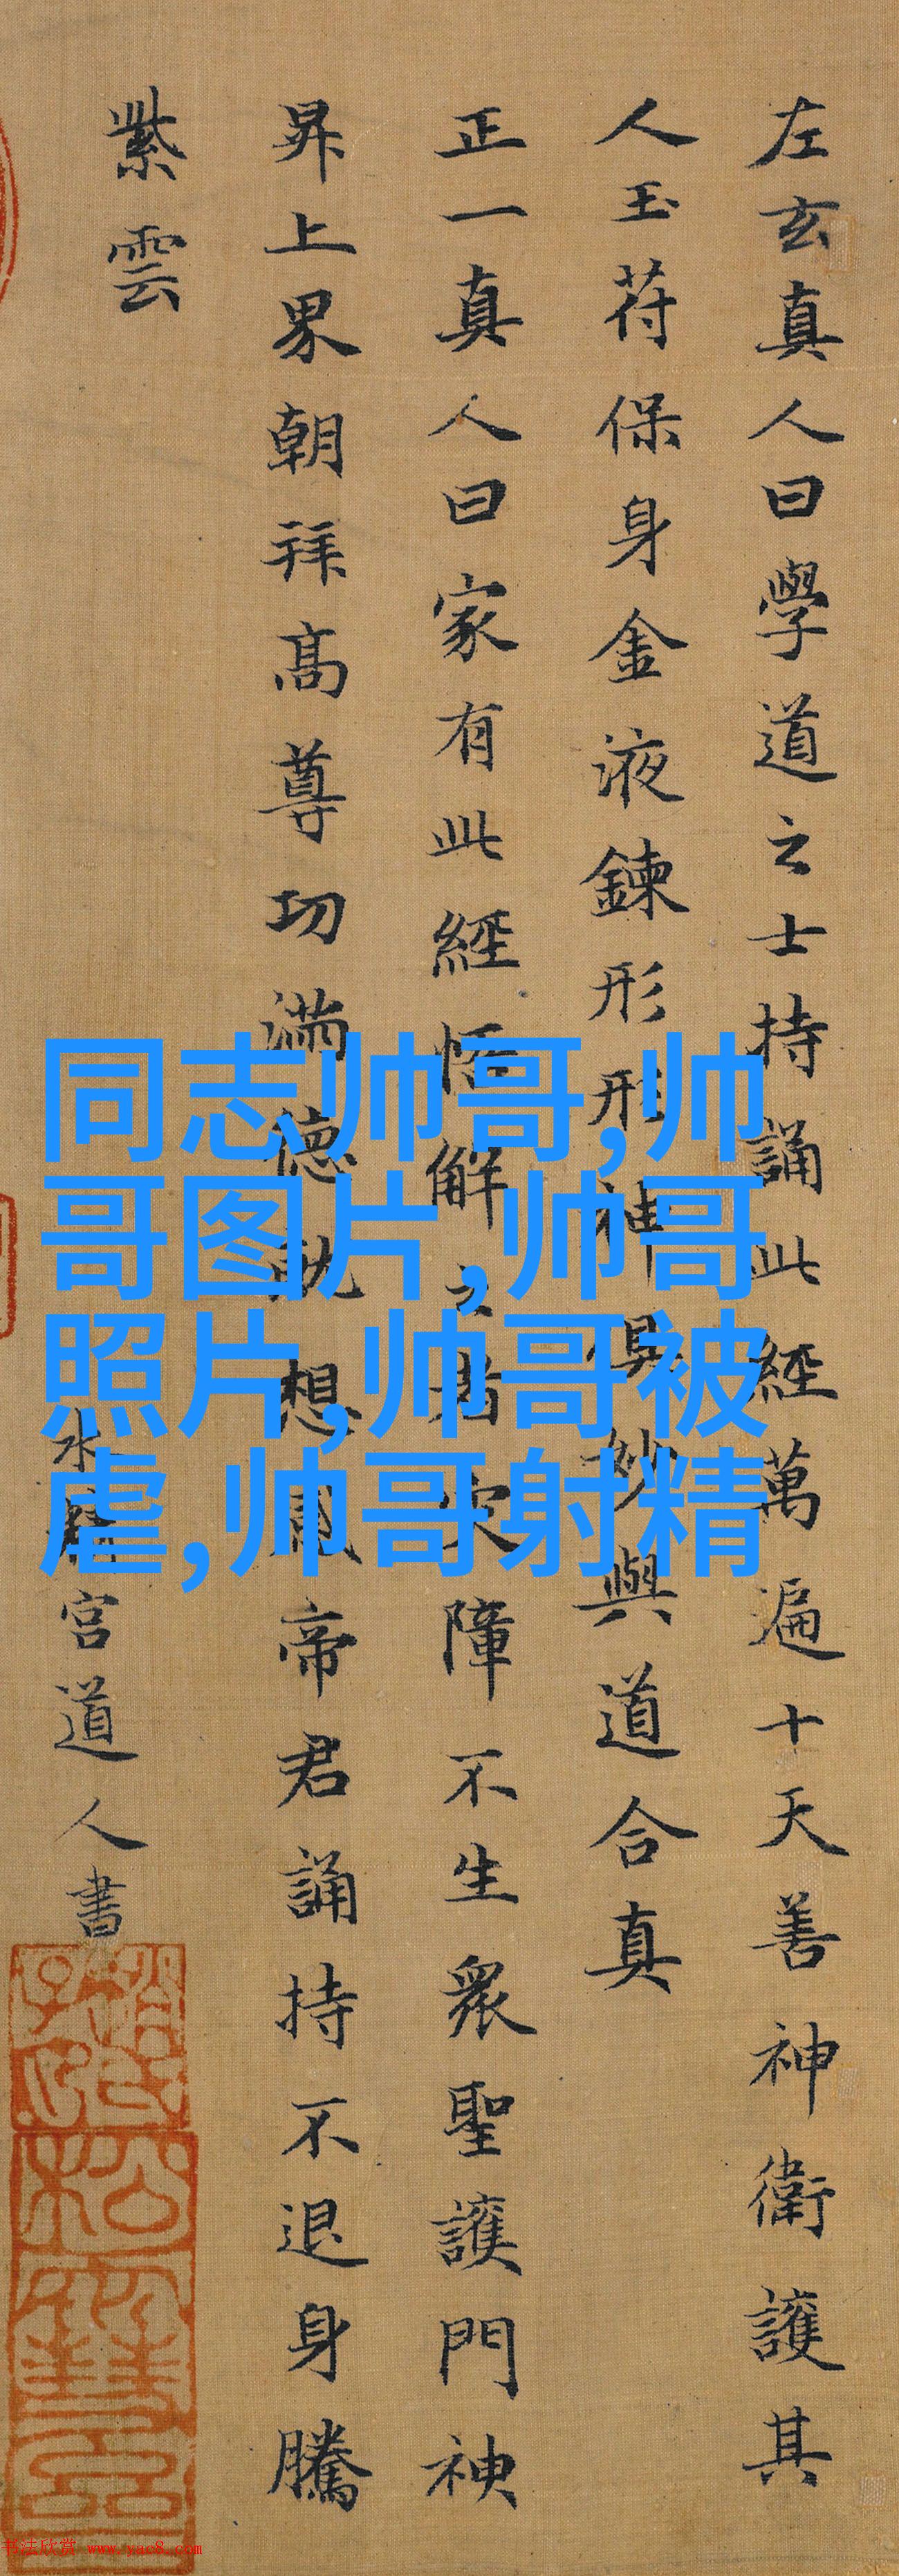 左玄真人曰學道之士持誦此經萬遍十天善神衛護其
人玉苻保身金液鍊形形神俱妙與道合真
正一真人曰家有此經悟解之者灾障不生衆聖護門神
昇上界朝拜髙尊功滿德就想感帝君誦持不退身騰
紫雲
水精宮道人書
同志帅哥,帅
哥图片,帅哥
照片,帅哥被
虐,帅哥射精
书法欣赏 www.yac8.com